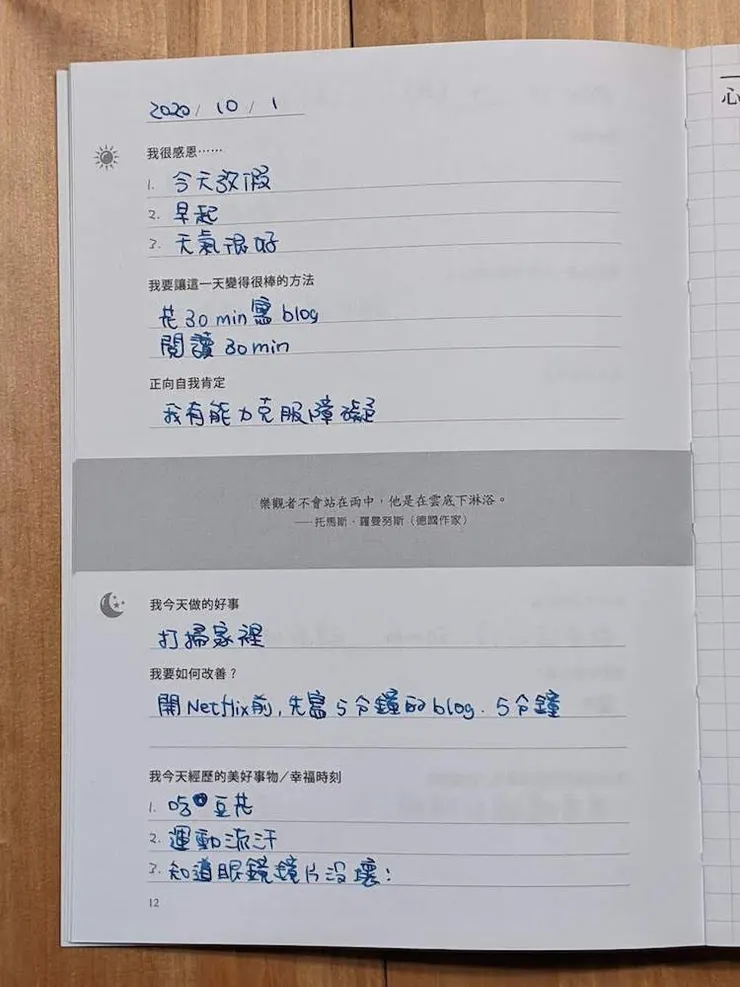 2020 / 10 / 1
我很感恩……
1. 今天放假
2. 早起
3. 天氣很好
我要讓這一天變得很棒的方法
花30 min寫 blog
閱讀 30 min
正向自我肯定
我有能力克服障礙
樂觀者不會站在雨中，他是在雲底下淋浴。
——托馬斯·羅曼努斯（德國作家）
我今天做的好事
打掃家裡
我要如何改善？
開Netflix前, 先寫 5 分鐘的 blog. 5分鐘
我今天經歷的美好事物／幸福時刻
1. 吃豆花
2. 運動流汗
3. 知道眼鏡鏡片沒壞!
12
心